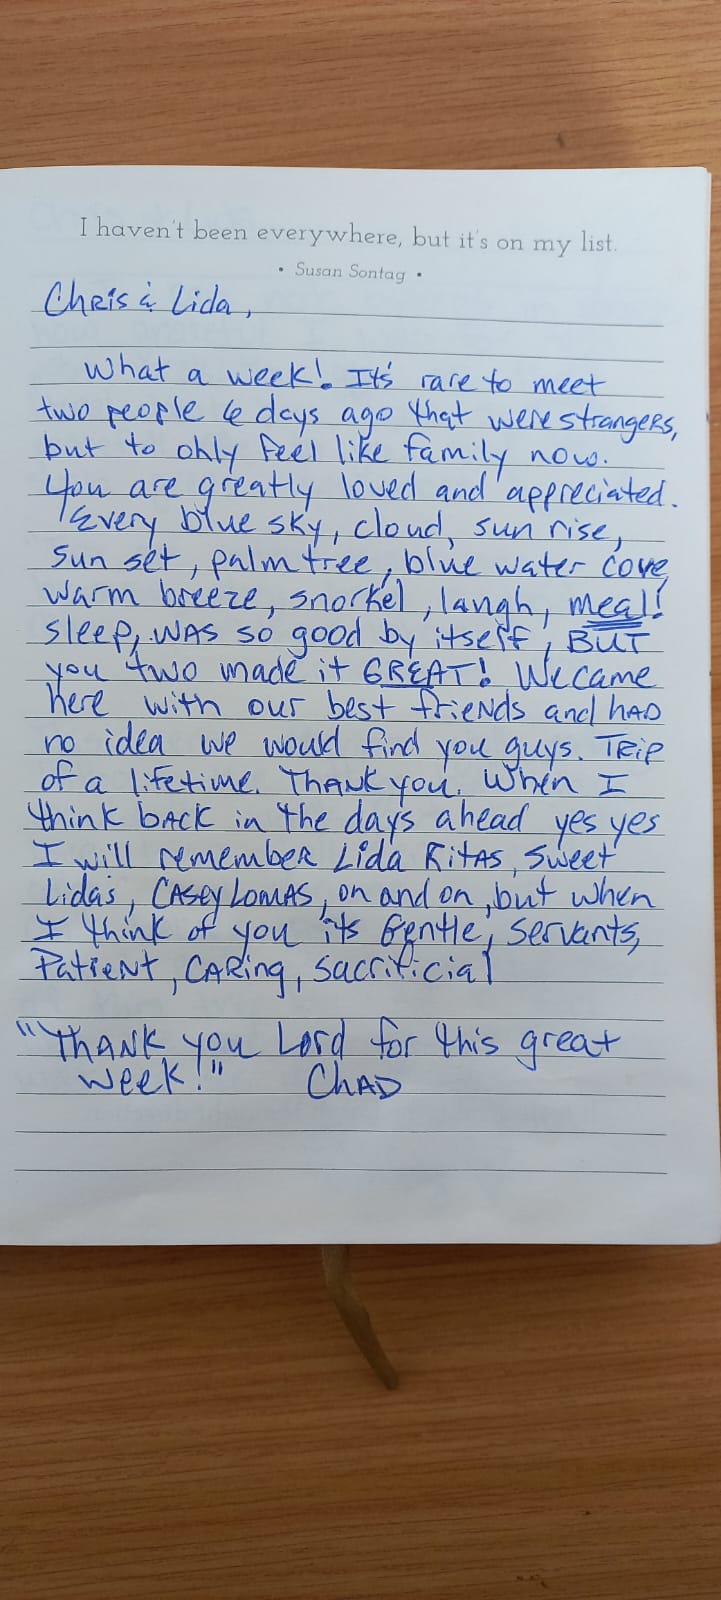 I haven't been everywhere, but it's on my list.
• Susan Sontag •
Chris & Lida,
What a week! It's rare to meet
two people 6 days ago that were strangers,
but to only feel like family now.
You are greatly loved and appreciated.
Every blue sky, cloud, sun rise,
sun set, palm tree, blue water cove,
warm breeze, snorkel, laugh, meal!
sleep, WAS so good by itself, BUT
you two made it GREAT! We came
here with our best friends and HAD
no idea we would find you guys. Trip
of a lifetime. THANK you. When I
think back in the days ahead yes yes
I will remember Lida Ritas, Sweet
Lidas, CASEY LOMAS, on and on, but when
I think of you its Gentle, Servants,
Patient, CARing, sacrificial
"THANK you Lord for this great
week!" CHAD